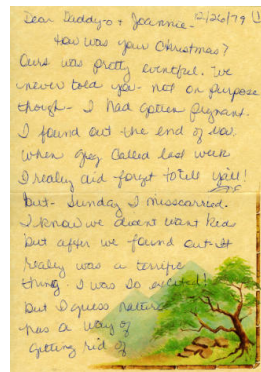 Dear Daddy-o + Joannie - 12/26/79
How was your Christmas?
Ours was pretty eventful. We
never told you - not on purpose
though - I had gotten pregnant.
I found out the end of Nov.
When Greg called last week
I really did forget to tell you!
But - Sunday I misscarried.
I know we didn't want kids
but after we found out - it
really was a terrific
thing - I was so excited!
But I guess nature
has a way of
getting rid of